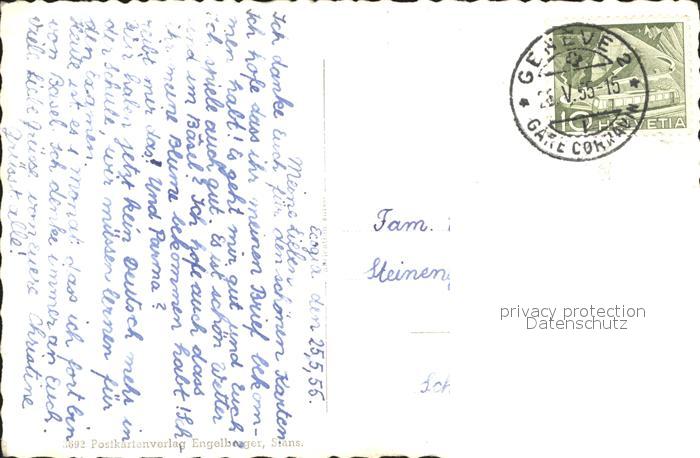 den 25.5.56.
Meine Lieben,
Ich danke Euch für den schönen Karten.
Ich hofe dass ihr meinen Brief bekom-
men habt! Es geht mir gut, und Euch?
Ich spiele auch gut. Es ist schön Wetter
und im Basel? Ich hofe auch dass
ihr meine Blume bekommen habt! Sch
reibt mir das! Und Parma?
Wir haben jetzt kein Deutsch mehr in
der Schule, wir müssen lernen für
den Examen.
Heute ist es 1 Monat dass ich fort bin
von Basel. Ich denke immer an Euch.
Viele liebe Grüsse von euere Christine
Grüsst alle!
Fam.
Steineng
Sch
GENÈVE 2
V.56-15
GARE CORNAVIN
10 HELVETIA
privacy protection
Datenschutz
5692 Postkartenverlag Engelberger, Stans.